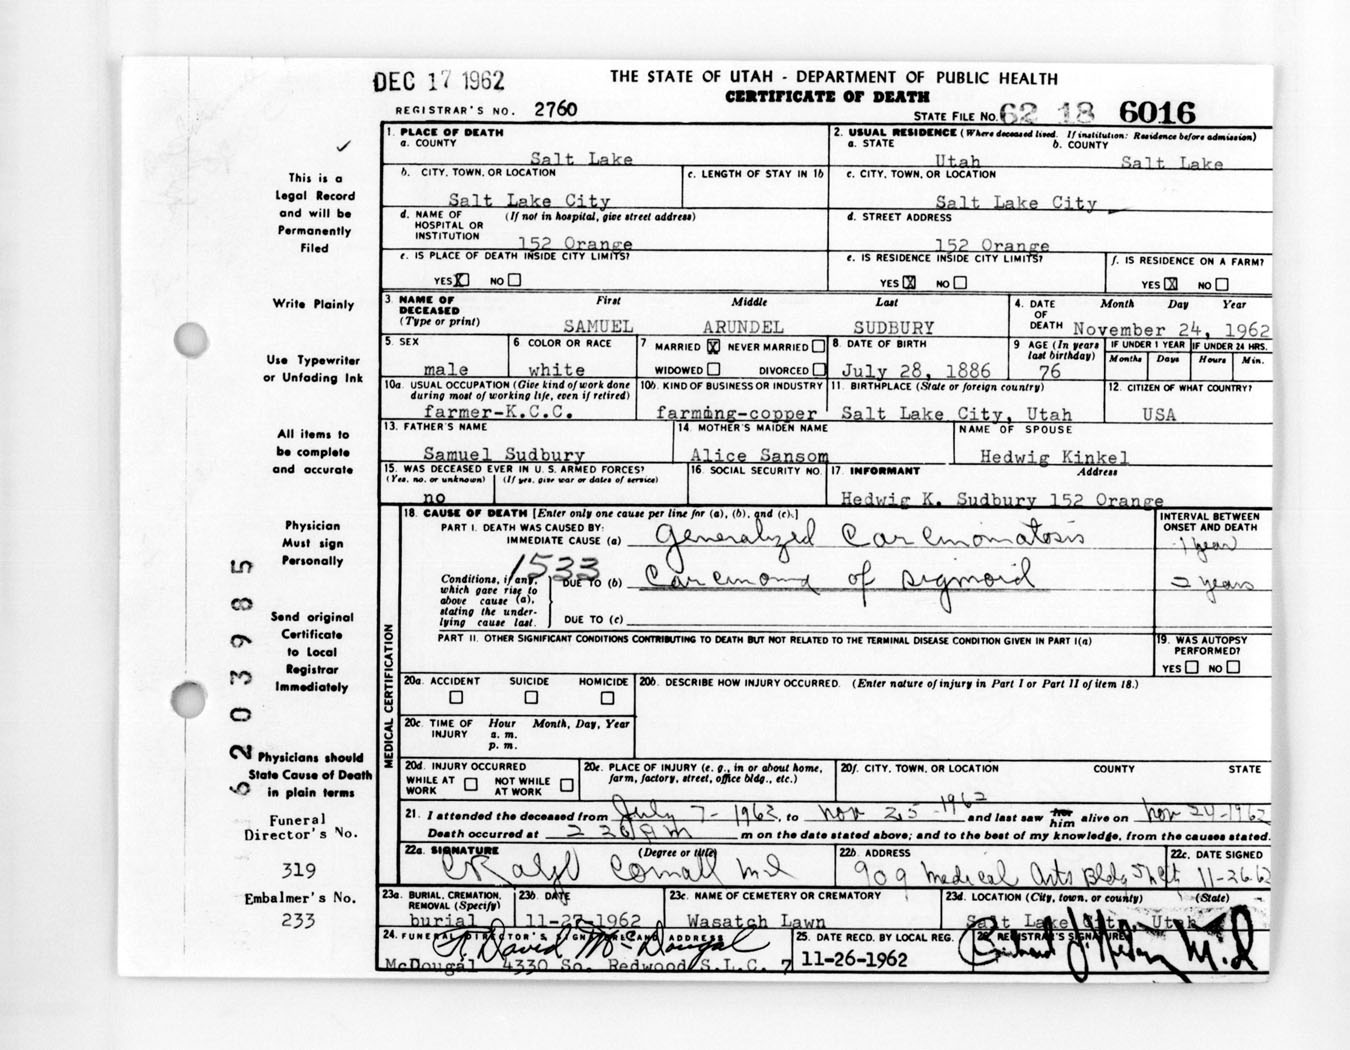 DEC 17 1962
THE STATE OF UTAH - DEPARTMENT OF PUBLIC HEALTH
CERTIFICATE OF DEATH
REGISTRAR'S NO. 2760
STATE FILE NO. 62 18 6016
This is a
Legal Record
and will be
Permanently
Filed
Write Plainly
Use Typewriter
or Unfading Ink
All items to
be complete
and accurate
Physician
Must sign
Personally
Send original
Certificate
to Local
Registrar
Immediately
Physicians should
State Cause of Death
in plain terms
Funeral
Director's No.
319
Embalmer's No.
233
6203985
1. PLACE OF DEATH
a. COUNTY
Salt Lake
2. USUAL RESIDENCE (Where deceased lived. If institution: Residence before admission)
a. STATE b. COUNTY
Utah Salt Lake
b. CITY, TOWN, OR LOCATION
Salt Lake City
c. LENGTH OF STAY IN 1b
c. CITY, TOWN, OR LOCATION
Salt Lake City
d. NAME OF (If not in hospital, give street address)
HOSPITAL OR
INSTITUTION
152 Orange
d. STREET ADDRESS
152 Orange
e. IS PLACE OF DEATH INSIDE CITY LIMITS?
YES X NO
e. IS RESIDENCE INSIDE CITY LIMITS?
YES X NO
f. IS RESIDENCE ON A FARM?
YES X NO
3. NAME OF First Middle Last
DECEASED
(Type or print)
SAMUEL ARUNDEL SUDBURY
4. DATE Month Day Year
OF
DEATH November 24, 1962
5. SEX
male
6 COLOR OR RACE
white
7 MARRIED X NEVER MARRIED
WIDOWED DIVORCED
8. DATE OF BIRTH
July 28, 1886
9 AGE (In years
last birthday)
76
IF UNDER 1 YEAR
Months Days
IF UNDER 24 HRS.
Hours Min.
10a. USUAL OCCUPATION (Give kind of work done
during most of working life, even if retired)
farmer-K.C.C.
10b. KIND OF BUSINESS OR INDUSTRY
farming-copper
11. BIRTHPLACE (State or foreign country)
Salt Lake City, Utah
12. CITIZEN OF WHAT COUNTRY?
USA
13. FATHER'S NAME
Samuel Sudbury
14. MOTHER'S MAIDEN NAME
Alice Sansom
NAME OF SPOUSE
Hedwig Kinkel
15. WAS DECEASED EVER IN U. S. ARMED FORCES?
(Yes, no, or unknown) (If yes, give war or dates of service)
no
16. SOCIAL SECURITY NO.
17. INFORMANT Address
Hedwig K. Sudbury 152 Orange
MEDICAL CERTIFICATION
18. CAUSE OF DEATH [Enter only one cause per line for (a), (b), and (c).]
PART I. DEATH WAS CAUSED BY:
IMMEDIATE CAUSE (a) Generalized Carcinomatosis
1533
Conditions, if any,
which gave rise to
above cause (a),
stating the under-
lying cause last.
DUE TO (b) Carcinoma of sigmoid
DUE TO (c)
INTERVAL BETWEEN
ONSET AND DEATH
1 year
2 years
PART II. OTHER SIGNIFICANT CONDITIONS CONTRIBUTING TO DEATH BUT NOT RELATED TO THE TERMINAL DISEASE CONDITION GIVEN IN PART I(a)
19. WAS AUTOPSY
PERFORMED?
YES NO
20a. ACCIDENT SUICIDE HOMICIDE
20b. DESCRIBE HOW INJURY OCCURRED. (Enter nature of injury in Part I or Part II of item 18.)
20c. TIME OF Hour Month, Day, Year
INJURY a. m.
p. m.
20d. INJURY OCCURRED
WHILE AT NOT WHILE
WORK AT WORK
20e. PLACE OF INJURY (e. g., in or about home,
farm, factory, street, office bldg., etc.)
20f. CITY, TOWN, OR LOCATION COUNTY STATE
21. I attended the deceased from July 7 - 1962, to Nov 25 - 1962 and last saw her him alive on Nov 24-1962
Death occurred at 2 m on the date stated above; and to the best of my knowledge, from the causes stated.
22a. SIGNATURE (Degree or title)
22b. ADDRESS
909 Medical Arts Bldg
22c. DATE SIGNED
11-26-62
23a. BURIAL, CREMATION,
REMOVAL (Specify)
burial
23b. DATE
11-27-1962
23c. NAME OF CEMETERY OR CREMATORY
Wasatch Lawn
23d. LOCATION (City, town, or county) (State)
Salt Lake City Utah
24. FUNERAL DIRECTOR'S SIGNATURE AND ADDRESS
R. David McDougal
McDougal 4330 So. Redwood S.L.C. 7
25. DATE RECD. BY LOCAL REG.
11-26-1962
26. REGISTRAR'S SIGNATURE